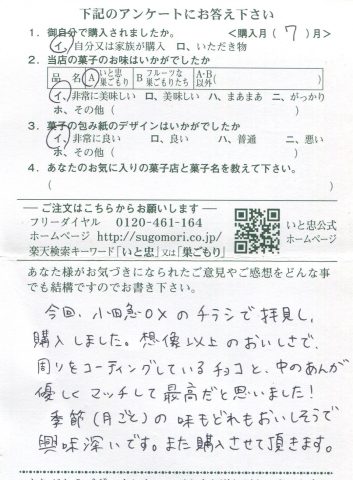 下記のアンケートにお答え下さい
1. 御自分で購入されましたか。 <購入月(7)月>
イ、自分又は家族が購入 ロ、いただき物
2. 当店の菓子のお味はいかがでしたか
品 名 A いと忠巣ごもり B フルーツな巣ごもりたち A・B以外( )
イ、非常に美味しい ロ、美味しい ハ、まあまあ ニ、がっかり
ホ、その他( )
3. 菓子の包み紙のデザインはいかがでしたか
イ、非常に良い ロ、良い ハ、普通 ニ、悪い
ホ、その他( )
4. あなたのお気に入りの菓子店と菓子名を教えて下さい。
( )
―ご注文はこちらからお願いします―
フリーダイヤル 0120-461-164
ホームページ http://sugomori.co.jp/
楽天検索キーワード「いと忠」又は「巣ごもり」
いと忠公式
ホームページ
あなた様がお気づきになられたご意見やご感想をどんな事
でも結構ですのでお書き下さい。
今回、小田急OXのチラシで拝見し、
購入しました。想像以上のおいしさで、
周りをコーティングしているチョコと、中のあんが
優しくマッチして最高だと思いました!
季節(月ごと)の味もどれもおいしそうで
興味深いです。また購入させて頂きます。